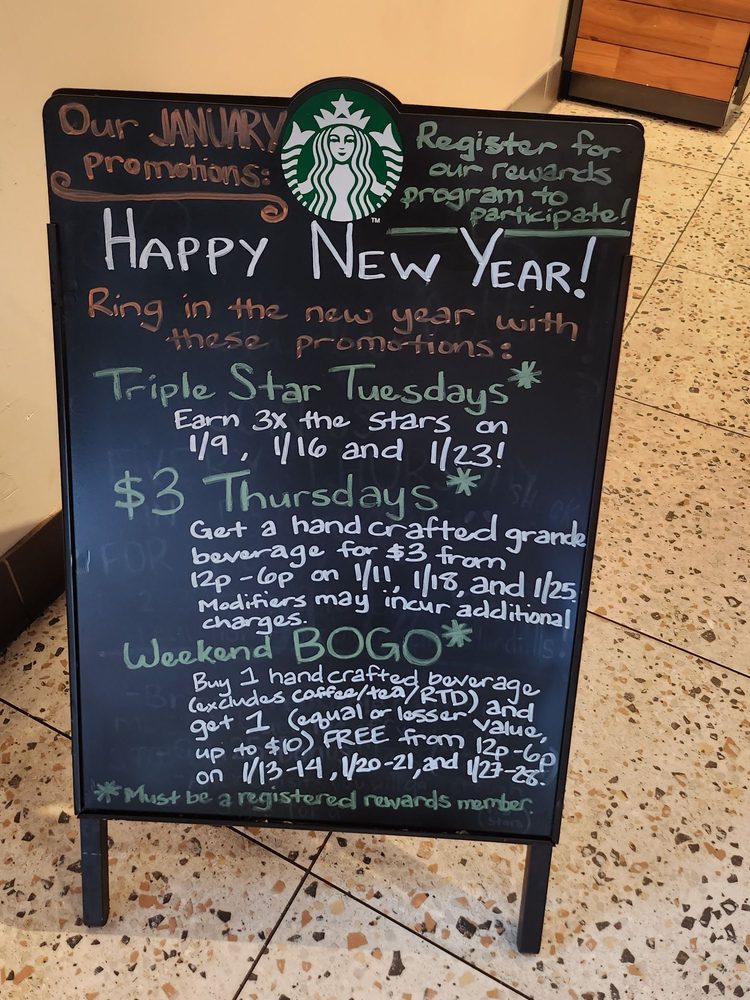 Our JANUARY
promotions:
Register for
our rewards
program to
participate!
TM
HAPPY NEW YEAR!
Ring in the new year with
these promotions:
Triple Star Tuesdays*
Earn 3x the stars on
1/9, 1/16 and 1/23!
$3 Thursdays*
Get a handcrafted grande
beverage for $3 from
12p-6p on 1/11, 1/18, and 1/25.
Modifiers may incur additional
charges.
Weekend BOGO*
Buy 1 handcrafted beverage
(excludes coffee/tea/RTD) and
get 1 (equal or lesser value,
up to $10) FREE from 12p-6p
on 1/13-14, 1/20-21, and 1/27-28.
*Must be a registered rewards member.